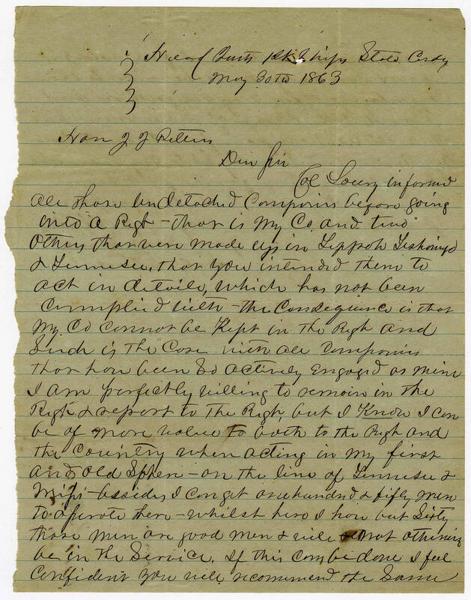 Head Qurts Miss State Cavy
May 30th 1863
Hon J J Pettus
Dear Sir
Col Lowry informed
all those undetached Companies before going
into a Regt - that is My Co, and two
Others that were made up in Tippah Tishomingo
& Tennessee, that you intended them to
act in details, which has not been
Complied with - the Consequence is that
My Co Cannot be Kept in the Regt and
Such is the Case with all Companies
that have been so actively Engaged as mine
I am perfectly willing to remain in the
Regt & report to the Regt, but I Know I can
be of more value to both to the Regt and
the Country when acting in my first
and Old Spher - on the line of Tennessee &
Missi - besides, I can get one hundred & fifty men
to operate there - whilst here I have but Sixty
those men are good men & will not otherwise
be in the Service. If this can be done I feel
Confident you will recommend the Same